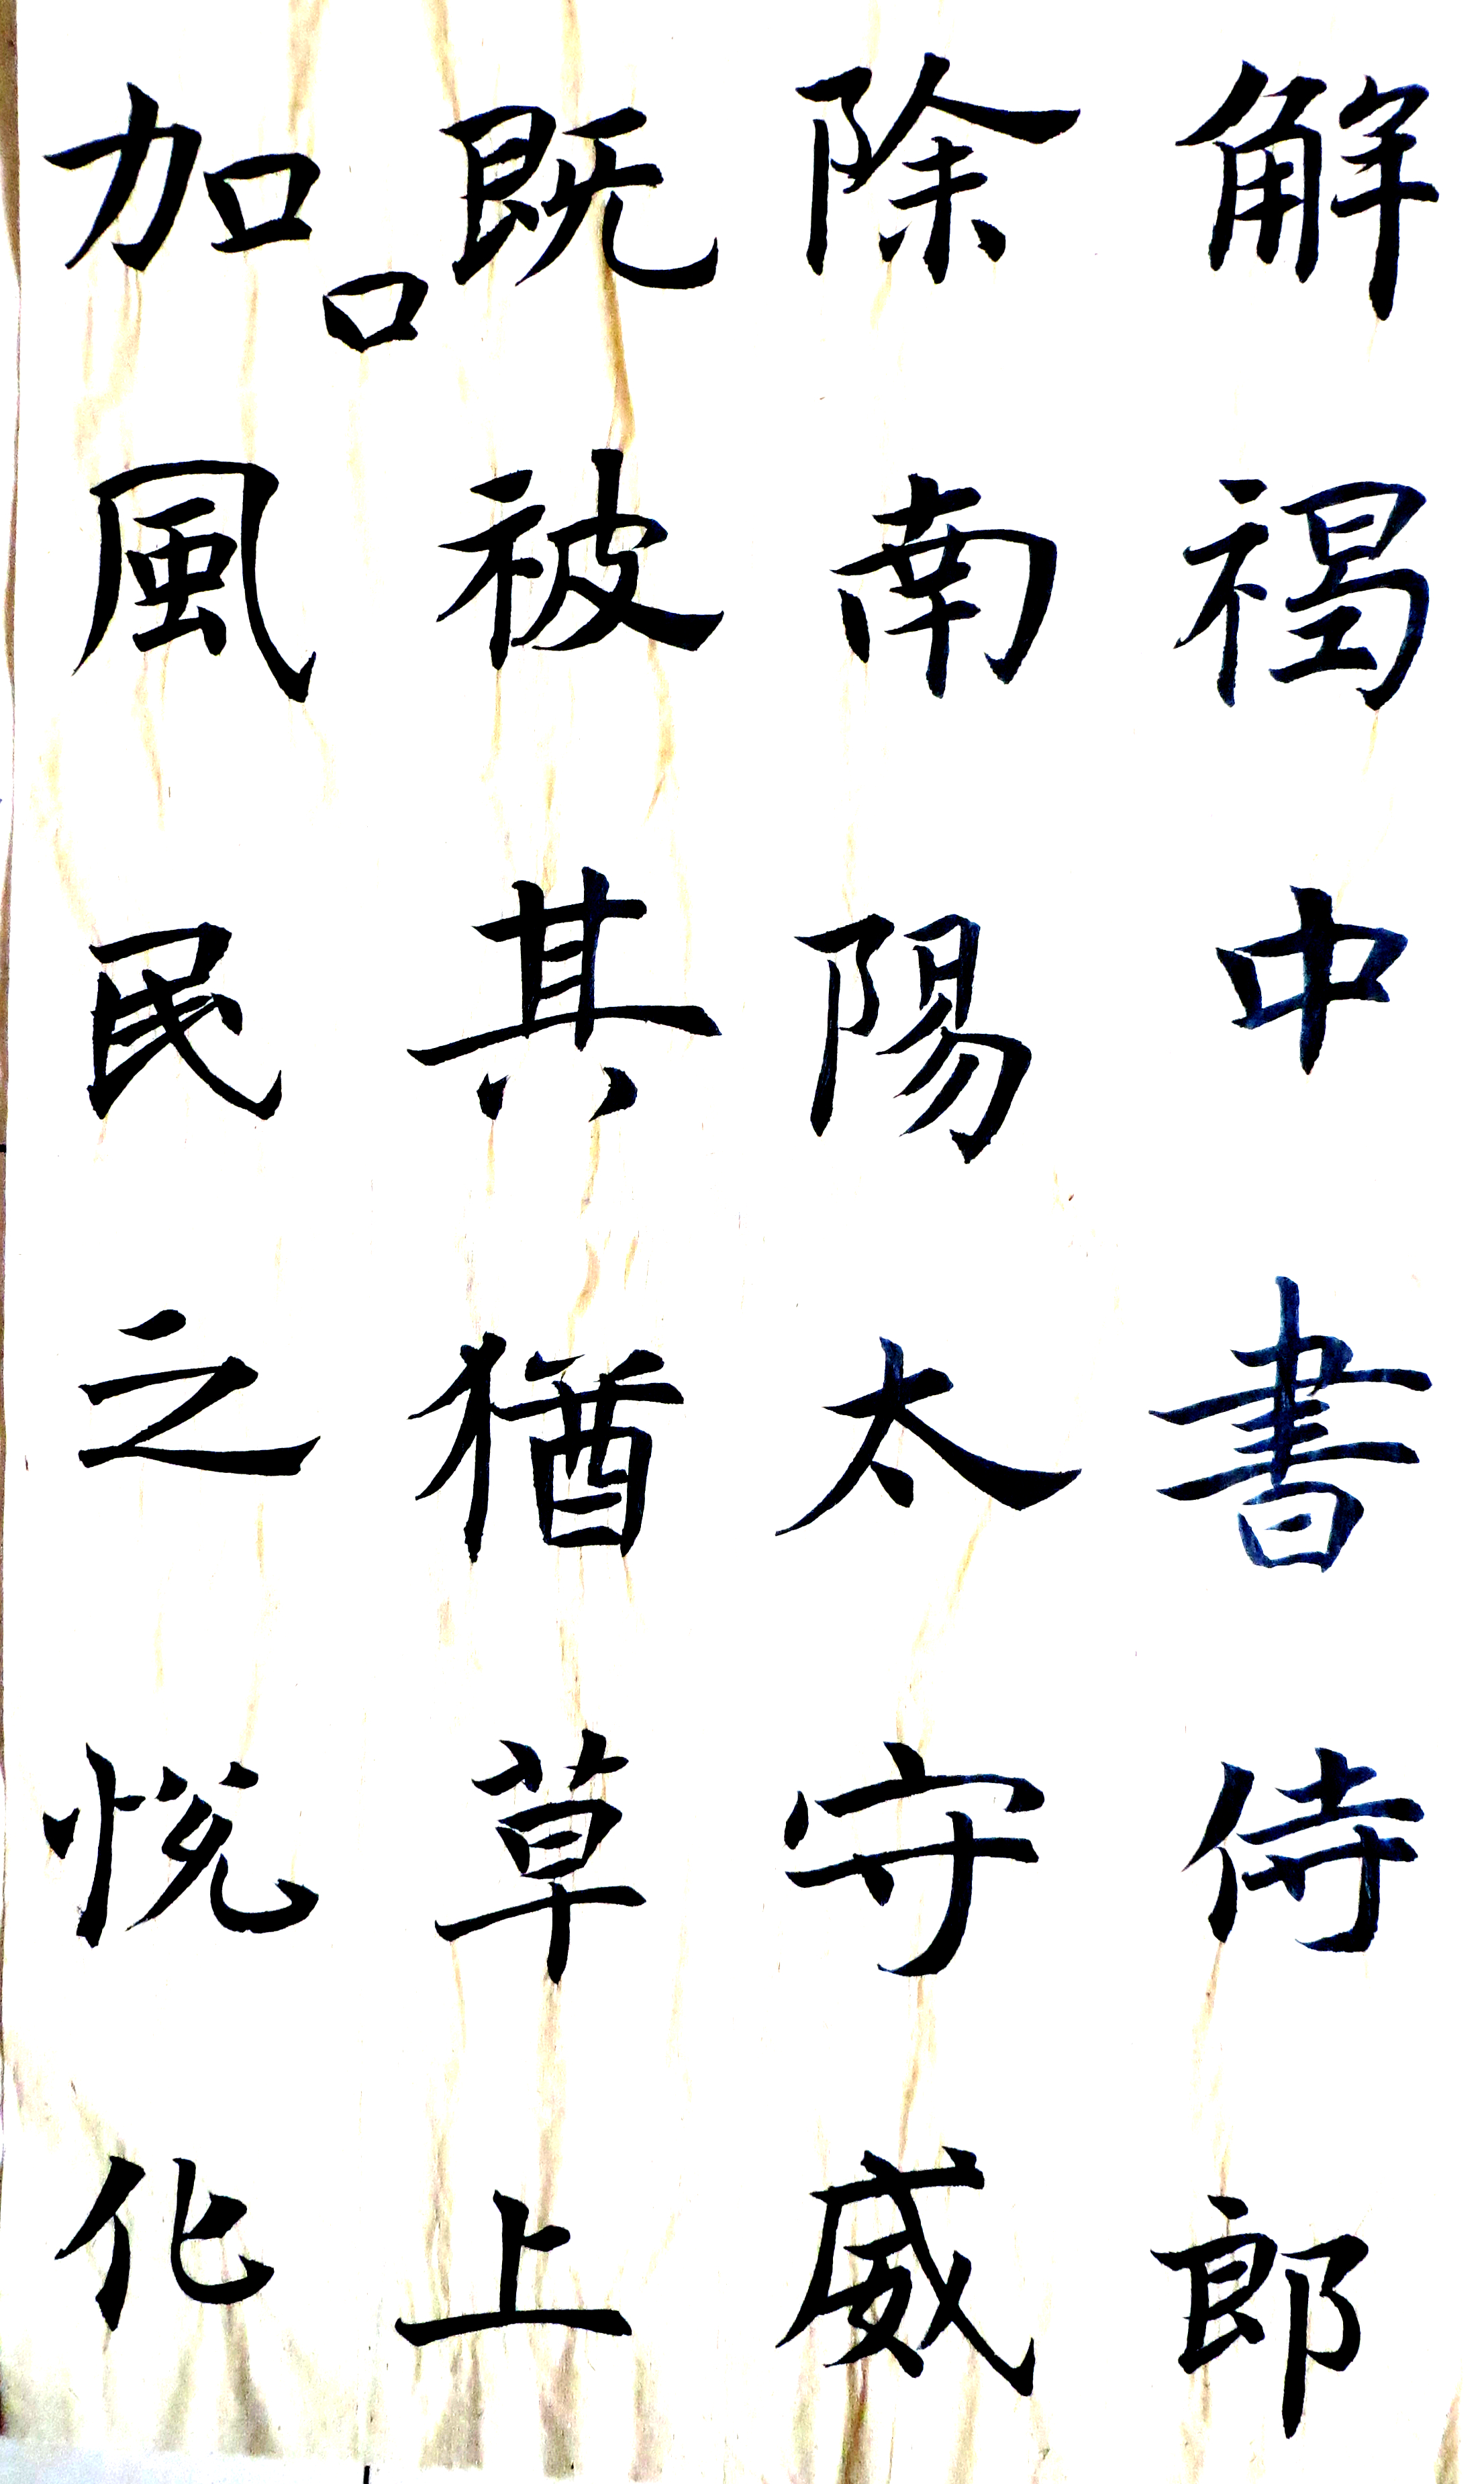 解褐中書侍郎
除南陽太守威
既被其猶草上
加風民之悅化